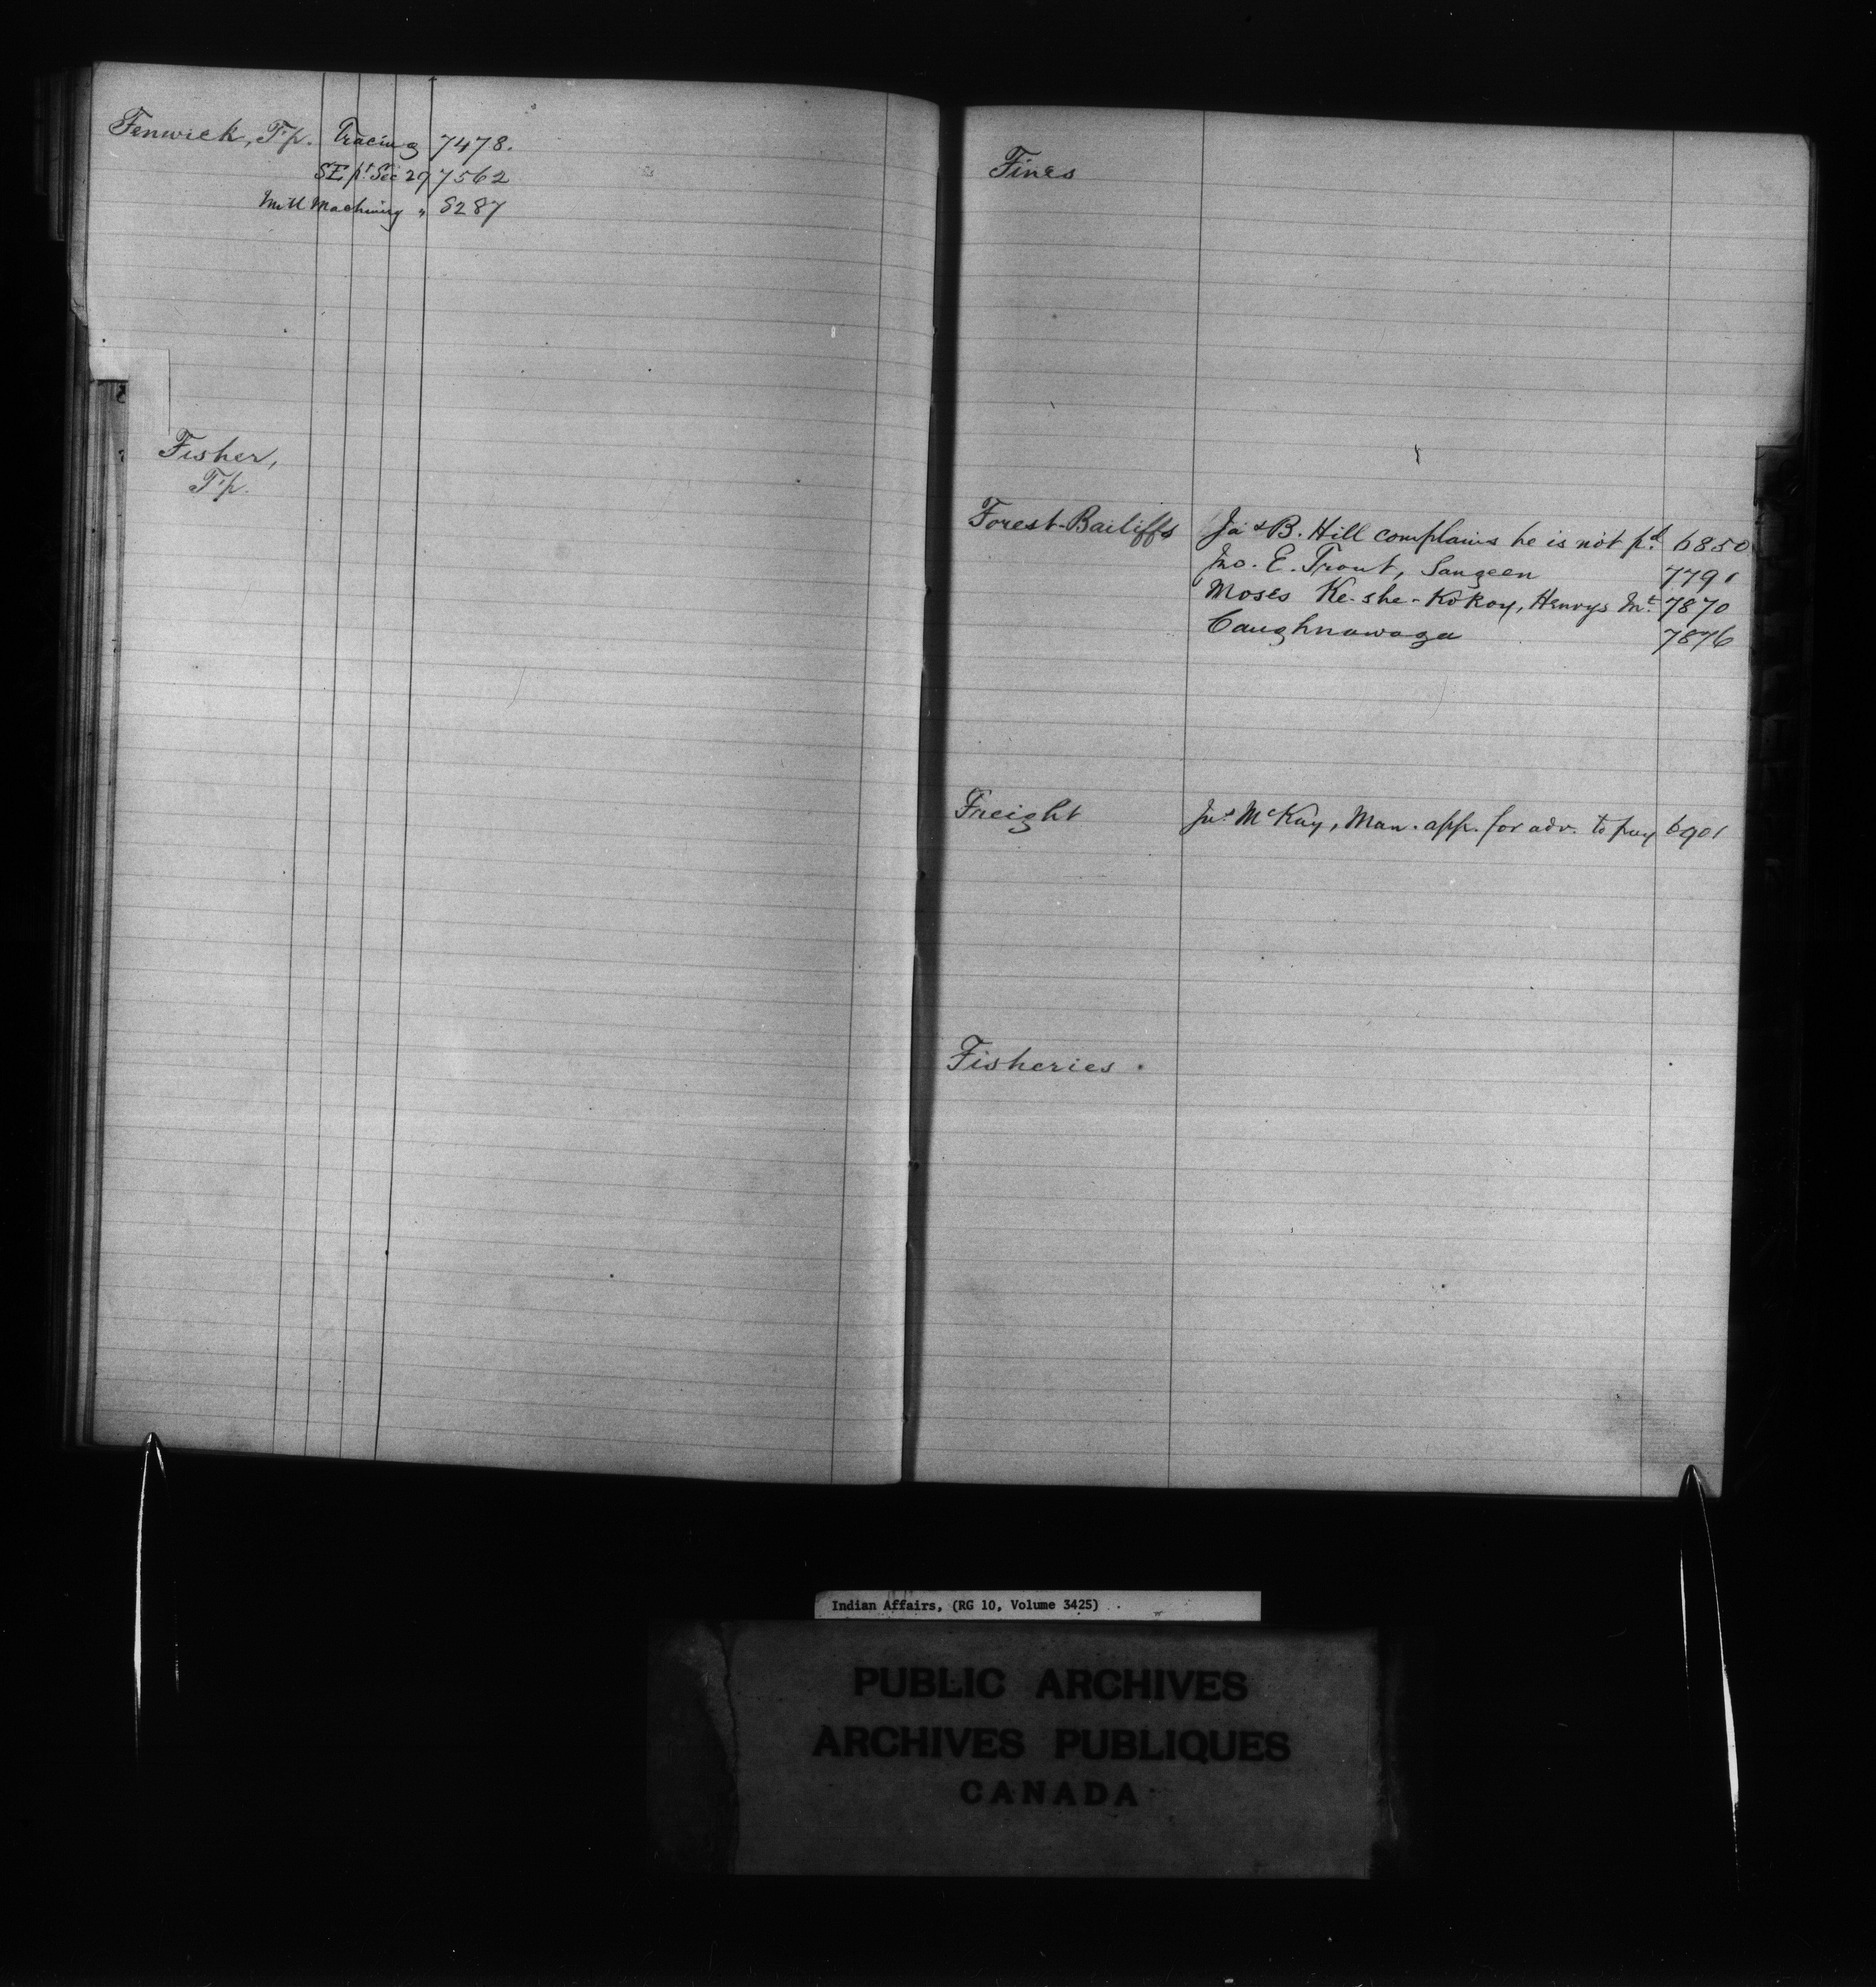 Fenwick, Tp. Tracing 7478.
SE pt. Sec 29 7562
Mill Machinery " 8287
Fisher,
Tp.
Fines
Forest-Bailiffs Jas B. Hill complains he is not pd. 6850
Jno. E. Trout, Saugeen 7791
Moses Ke-she-Kokoy, Henrys Mt. 7870
Caughnawaga 7876
Freight Jas McKay, Man. app. for adv. to pay 6901
Fisheries.
Indian Affairs, (RG 10, Volume 3425)
PUBLIC ARCHIVES
ARCHIVES PUBLIQUES
CANADA